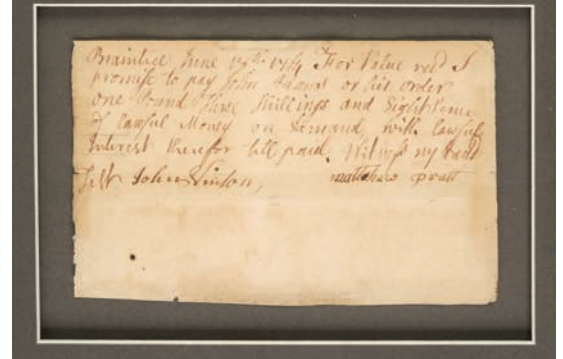 Braintree June 1764 For Value recd I
promise to pay John Adams or his order
one Pound Three Shillings and Eight Pence
of lawful Money on Demand, with lawful
Interest therefor till paid. Witness my hand
Test John Vinton, matthew pratt